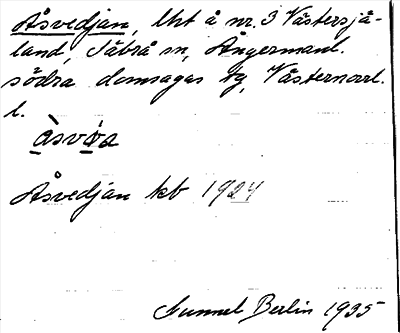 Åsvedjan, lht å nr. 3 Västersjä-
land, Säbrå sn, Ångermanl.
södra domsagas tg, Västernorrl.
l.
Åsvedjan kb 1924
Gunnel Berlin 1935